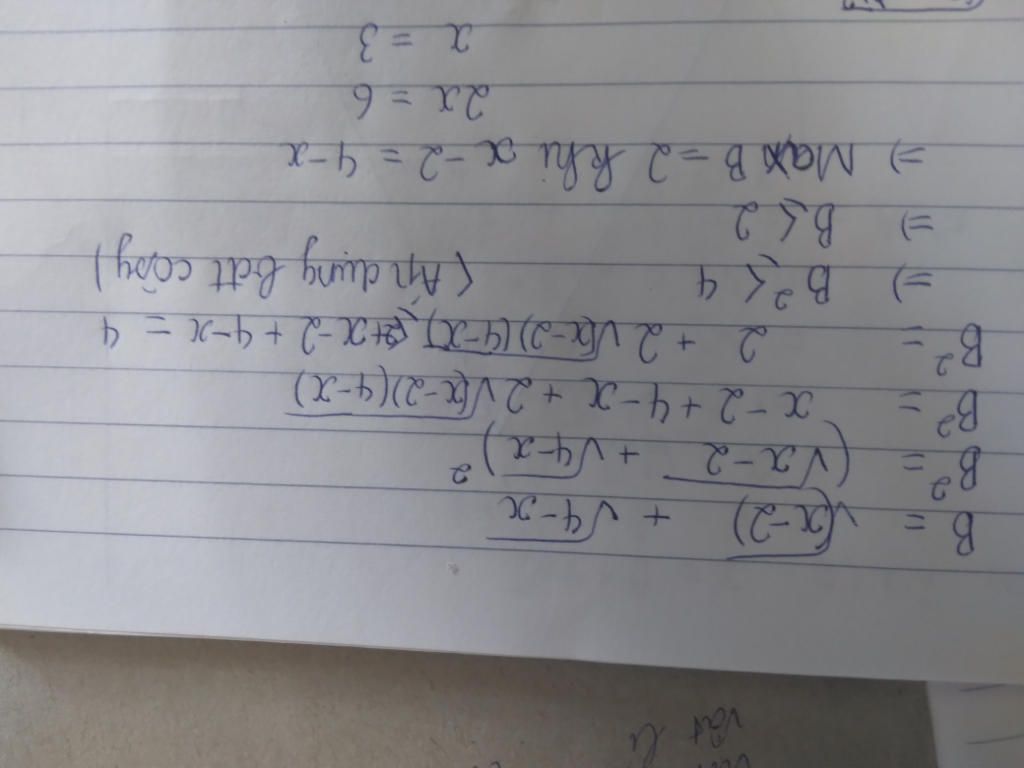 B = √(x-2) + √4-x
B² = (√x-2 + √4-x)²
B² = x-2+4-x+2√(x-2)(4-x)
B² = 2 + 2√(x-2)(4-x) ≤ 2+x-2+4-x = 4
⇒ B² ≤ 4 (Áp dụng bất cosy)
⇒ B ≤ 2
⇒ Max B = 2 khi x-2 = 4-x
2x = 6
x = 3